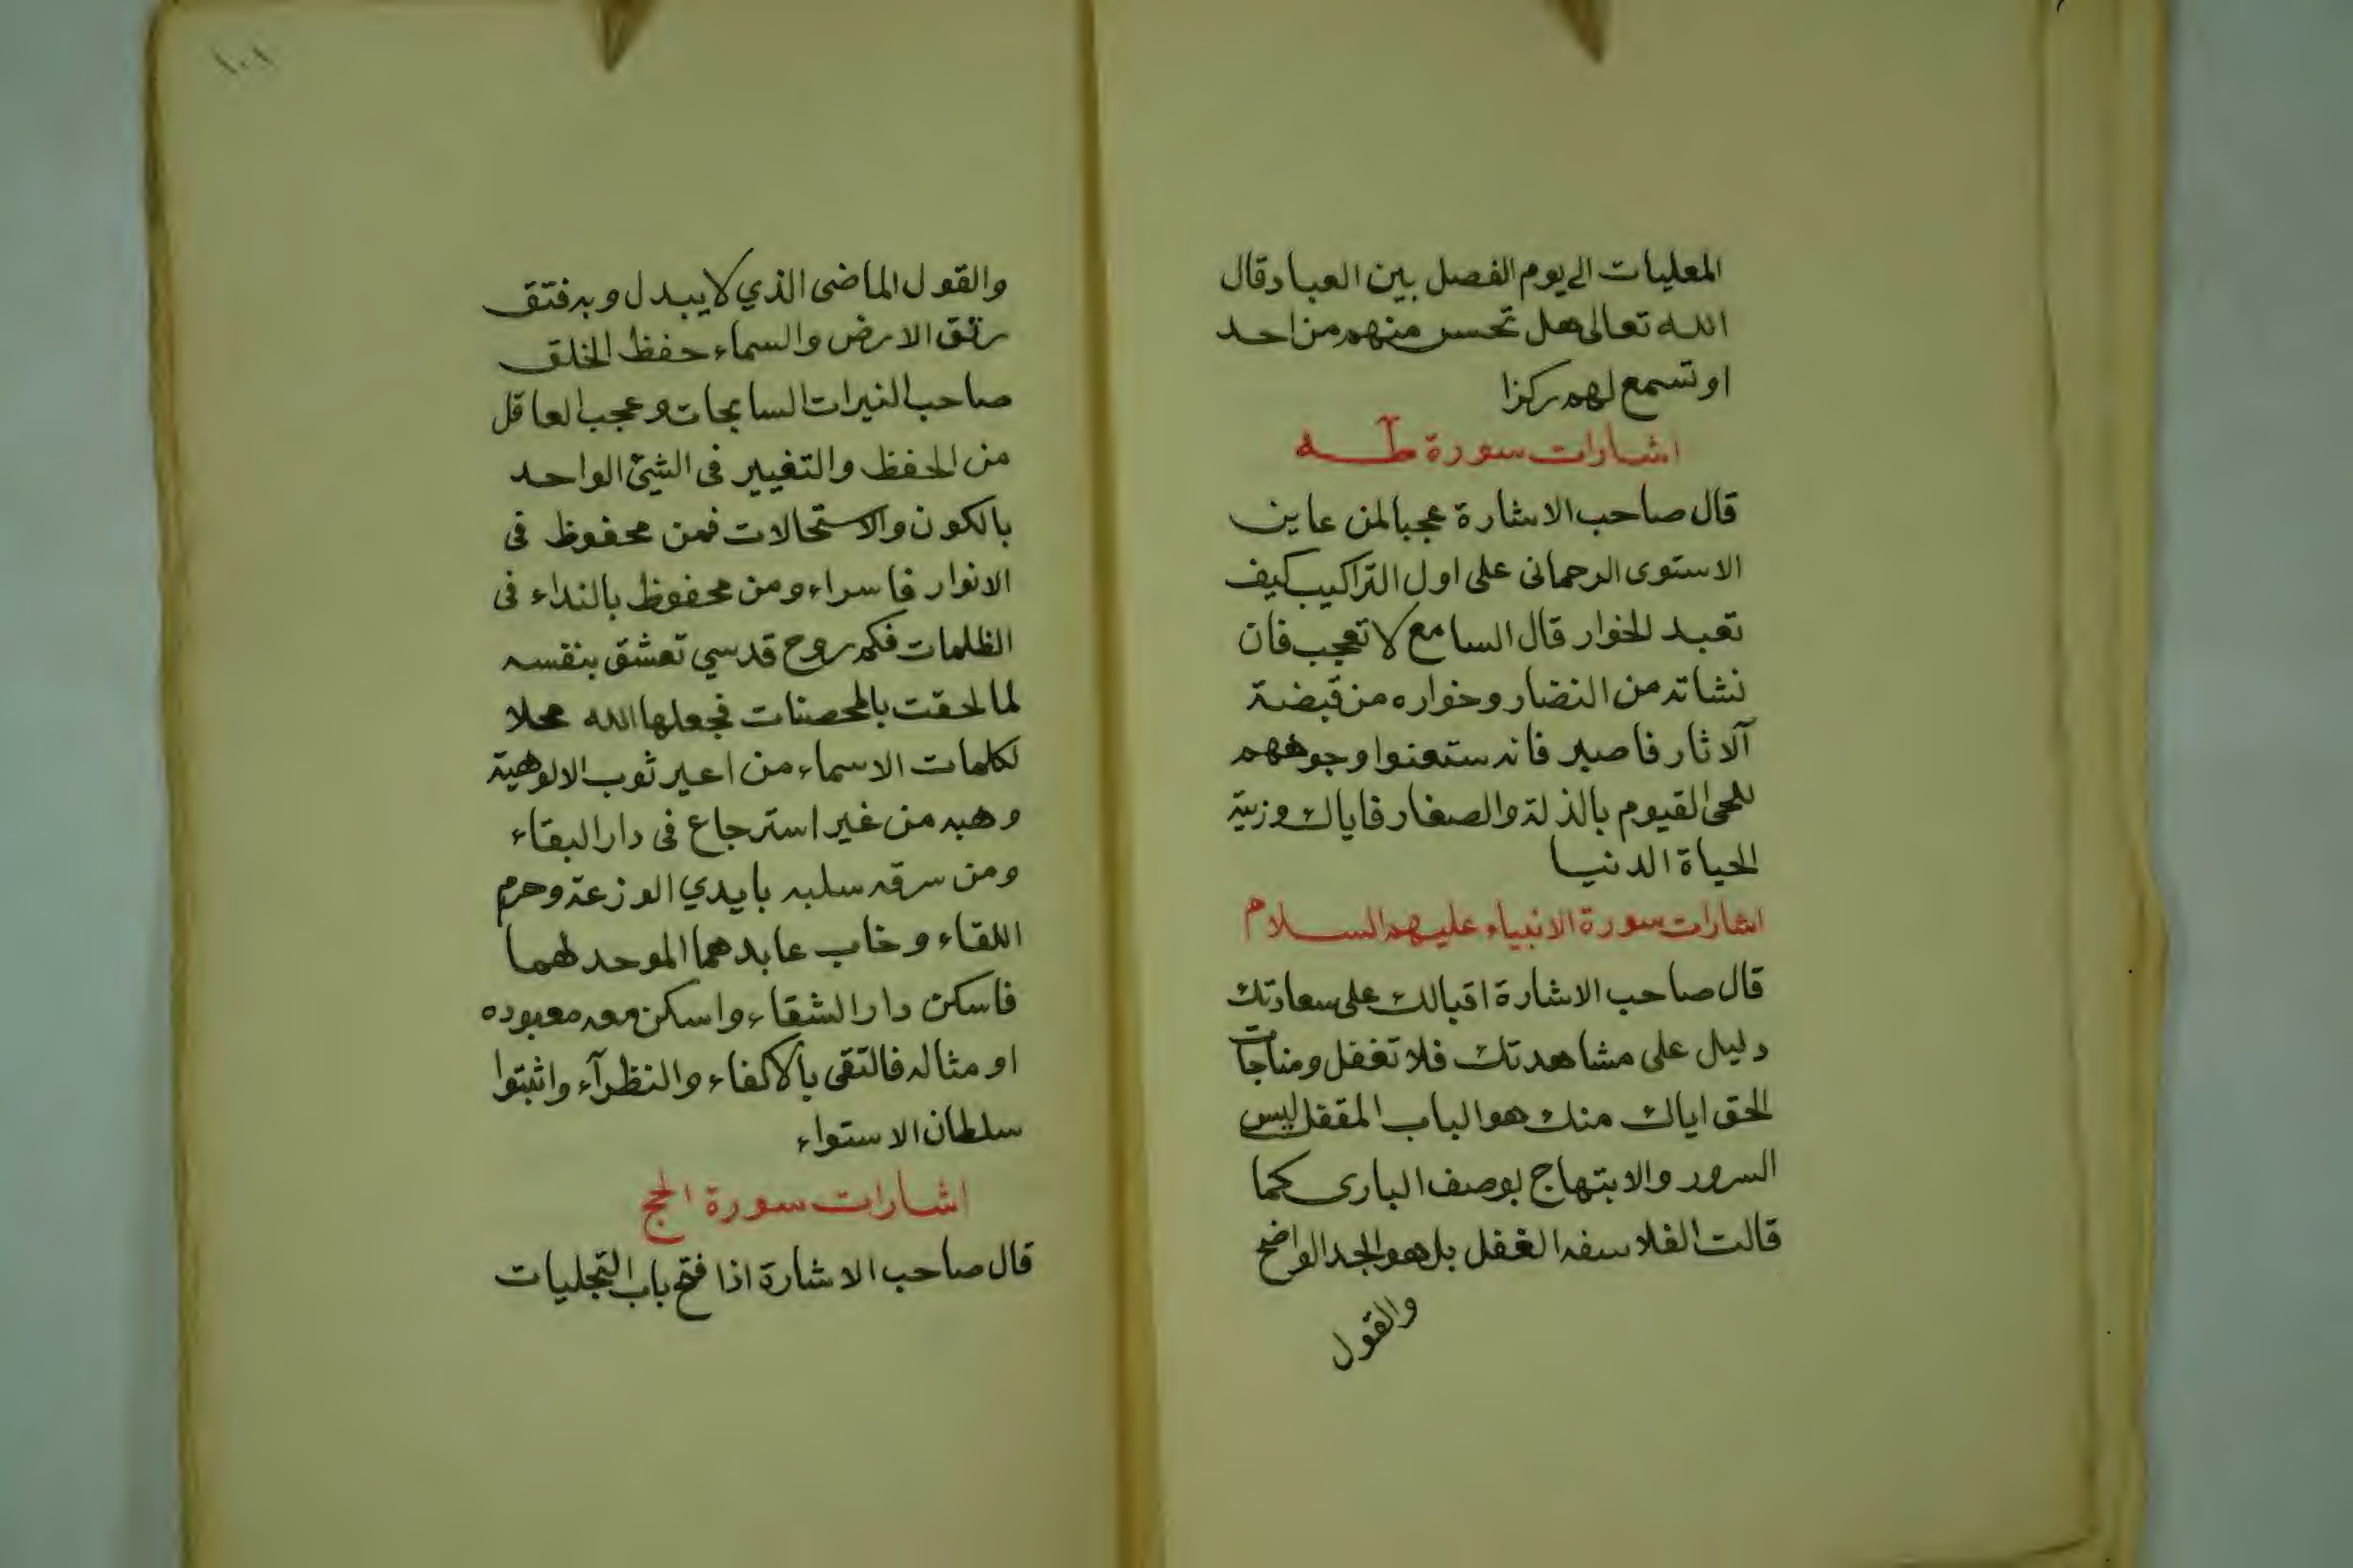 المعليات الى يوم الفصل بين العباد قال
الله تعالى هل تحس منهم من احد
او تسمع لهم ركزا
اشارات سورة طه
قال صاحب الاشارة عجبا لمن عاين
الاستوى الرحمانى على اول التراكيب كيف
تعبد للخوار قال السامع لا تعجب فان
نشاته من النضار وخواره من قبضة
آلاثار فاصبر فانه ستعنوا وجوههم
للحى القيوم بالذلة والصغار فاياك وزينة
الحياة الدنيا
اشارات سورة الانبياء عليهم السلام
قال صاحب الاشارة اقبالك على سعادتك
دليل على مشاهدتك فلا تغفل ومناجات
الحق اياك منك هو الباب المقفل ليس
السرور والابتهاج بوصف البارى كما
قالت الفلاسفه الغفل بل هو الجد الواضح
والقول
١٠١
والقول الماضى الذي لا يبدل وبه فتق
رتق الارض والسماء حفظ الخلق
صاحب النيرات السابحات وعجب العاقل
من الحفظ والتغيير فى الشئ الواحد
بالكون والاستحالات فمن محفوظ فى
الانوار فاسراء ومن محفوظ بالنداء فى
الظلمات فكم روح قدسي تعشق بنفسه
لما لحقت بالمحصنات فجعلها الله محلا
لكلمات الاسماء من اعير ثوب الالوهية
وهبه من غير استرجاع فى دار البقاء
ومن سرقه سلبه بايدي الوزعة وحرم
اللقاء وخاب عابدهما الموحد لهما
فاسكن دار الشقاء واسكن معه معبوده
او مثاله فالتقى بالاكفاء والنظرآء واثبتوا
سلطان الاستواء
اشارات سورة الحج
قال صاحب الاشارة اذا فتح باب التجليات